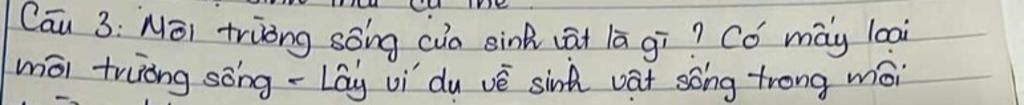 Câu 3: Môi trường sống của sinh vật là gì? Có mấy loại
môi trường sống - Lấy ví dụ về sinh vật sống trong môi